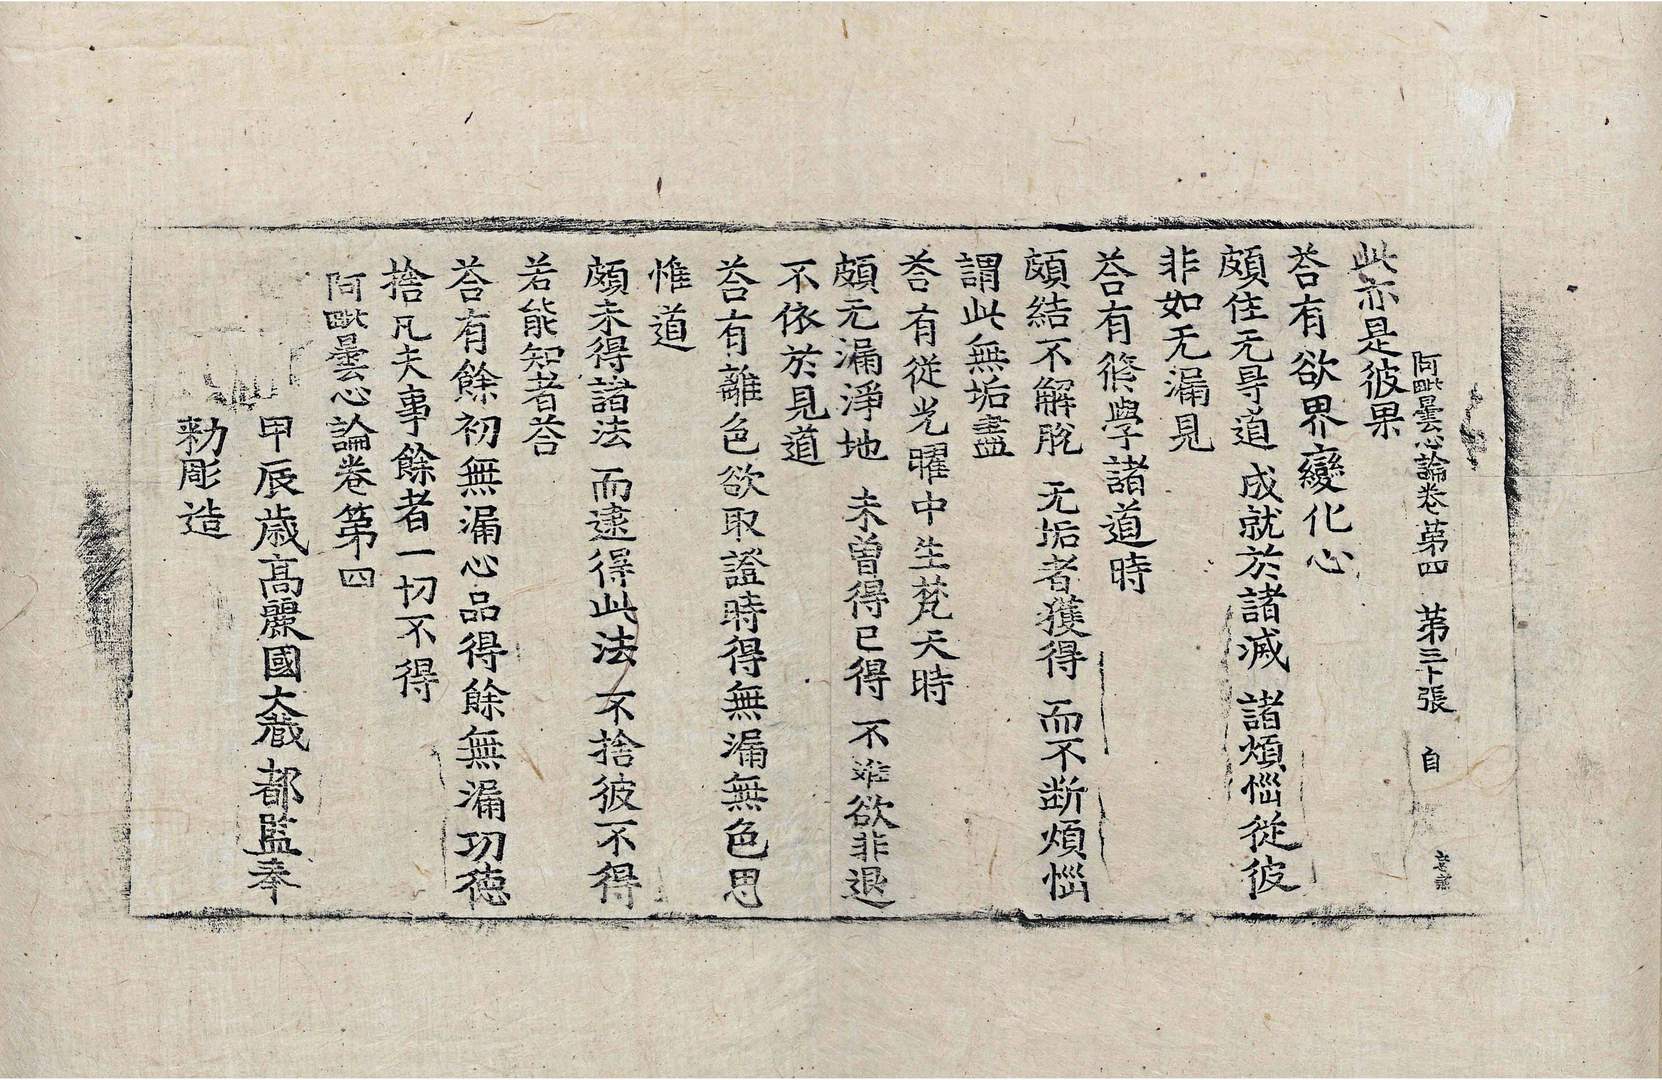 阿毗曇心論卷苐四 苐三十張 自
此亦是彼果
荅有欲界變化心
頗住无㝵道 成就於諸滅 諸煩惱從彼
非如无漏見
荅有修學諸道時
頗結不解脫 无垢者獲得 而不断煩惱
謂此無垢盡
荅有從光曜中生梵天時
頗无漏淨地 未曾得已得 不離欲非退
不依於見道
荅有離色欲取證時得無漏無色思
惟道
頗未得諸法 而逮得此法 不捨彼不得
若能知者荅
荅有餘初無漏心品得餘無漏功德
捨凡夫事餘者一切不得
阿毗曇心論卷第四
甲辰歲高麗國大藏都監奉
勑彫造